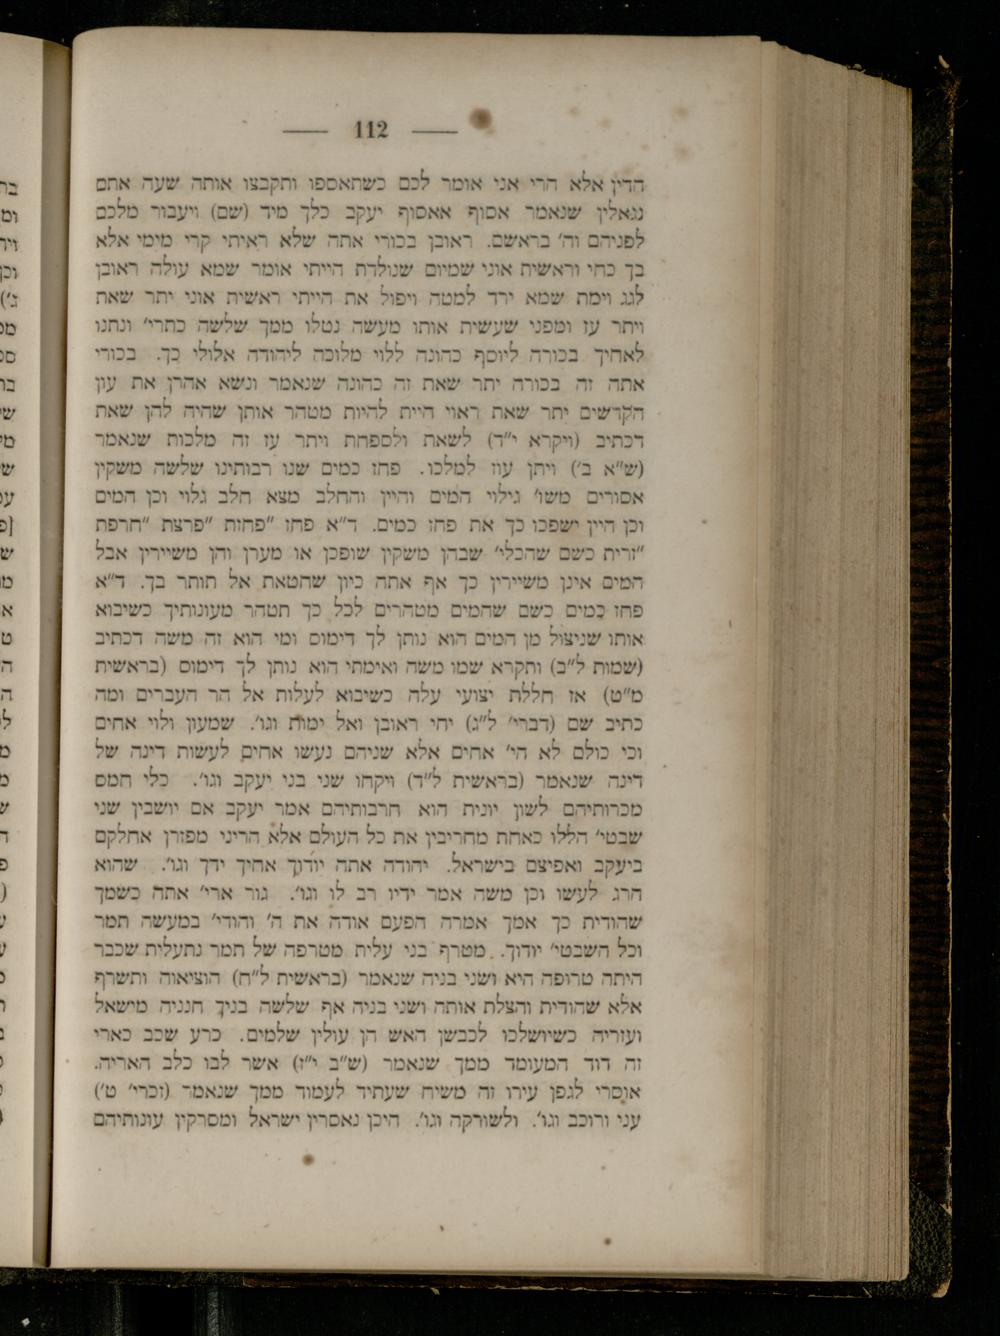 — 112 —
הדין אלא הרי אני אומר לכם כשתאספו ותקבצו אותה שעה אתם
נגאלין שנאמר אסוף אאסוף יעקב כלך מיד (שם) ויעבור מלכם
לפניהם וה׳ בראשם. ראובן בכורי אתה שלא ראיתי קרי מימי אלא
בך כחי וראשית אוני שמיום שנולדת הייתי אומר שמא עולה ראובן
לגג וימת שמא ירד למטה ויפול את הייתי ראשית אוני יתר שאת
ויתר עז ומפני שעשית אותו מעשה נטלו ממך שלשה כתרי׳ ונתנו
לאחיך בכורה ליוסף כהונה ללוי מלוכה ליהודה אלולי כך. בכורי
אתה זה בכורה יתר שאת זה כהונה שנאמר ונשא אהרן את עון
הקדשים יתר שאת ראוי היית להיות מטהר אותן שהיה להן שאת
דכתיב (ויקרא י״ד) לשאת ולספחת ויתר עז זה מלכות שנאמר
(ש״א ב׳) ויתן עוז למלכו. פחז כמים שנו רבותינו שלשה משקין
אסורים משו׳ גילוי המים והיין והחלב מצא חלב גלוי וכן המים
וכן היין ישפכו כך את פחז כמים. ד״א פחז ״פחזת ״פרצת ״חרפת
״זרית כשם שהכלי׳ שבהן משקין שופכן או מערן והן משיירין אבל
המים אינן משיירין כך אף אתה כיון שחטאת אל תותר בך. ד״א
פחז כמים כשם שהמים מטהרים לכל כך תטהר מעונותיך כשיבוא
אותו שניצול מן המים הוא נותן לך דימוס ומי הוא זה משה דכתיב
(שמות ל״ב) ותקרא שמו משה ואימתי הוא נותן לך דימוס (בראשית
מ״ט) אז חללת יצועי עלה כשיבוא לעלות אל הר העברים ומה
כתיב שם (דברי׳ ל״ג) יחי ראובן ואל ימות וגו׳. שמעון ולוי אחים
וכי כולם לא הי׳ אחים אלא שניהם נעשו אחים לעשות דינה של
דינה שנאמר (בראשית ל״ד) ויקחו שני בני יעקב וגו׳. כלי חמס
מכרותיהם לשון יונית הוא חרבותיהם אמר יעקב אם יושבין שני
שבטי׳ הללו כאחת מחריבין את כל העולם אלא הריני מפזרן אחלקם
ביעקב ואפיצם בישראל. יהודה אתה יודוך אחיך ידך וגו׳. שהוא
הרג לעשו וכן משה אמר ידיו רב לו וגו׳. גור ארי׳ אתה כשמך
שהודית כך אמך אמרה הפעם אודה את ה׳ והודי׳ במעשה תמר
וכל השבטי׳ יודוך. מטרף בני עלית מטרפה של תמר נתעלית שכבר
היתה טרופה היא ושני בניה שנאמר (בראשית ל״ח) הוציאוה ותשרף
אלא שהודית והצלת אותה ושני בניה אף שלשה בניך חנניה מישאל
ועזריה כשיושלכו לכבשן האש הן עולין שלמים. כרע שכב כארי
זה דוד המעומד ממך שנאמר (ש״ב י״ז) אשר לבו כלב האריה.
אוסרי לגפן עירו זה משיח שעתיד לעמוד ממך שנאמר (זכרי׳ ט׳)
עני ורוכב וגו׳. ולשורקה וגו׳. היכן נאסרין ישראל ומסרקין עונותיהם